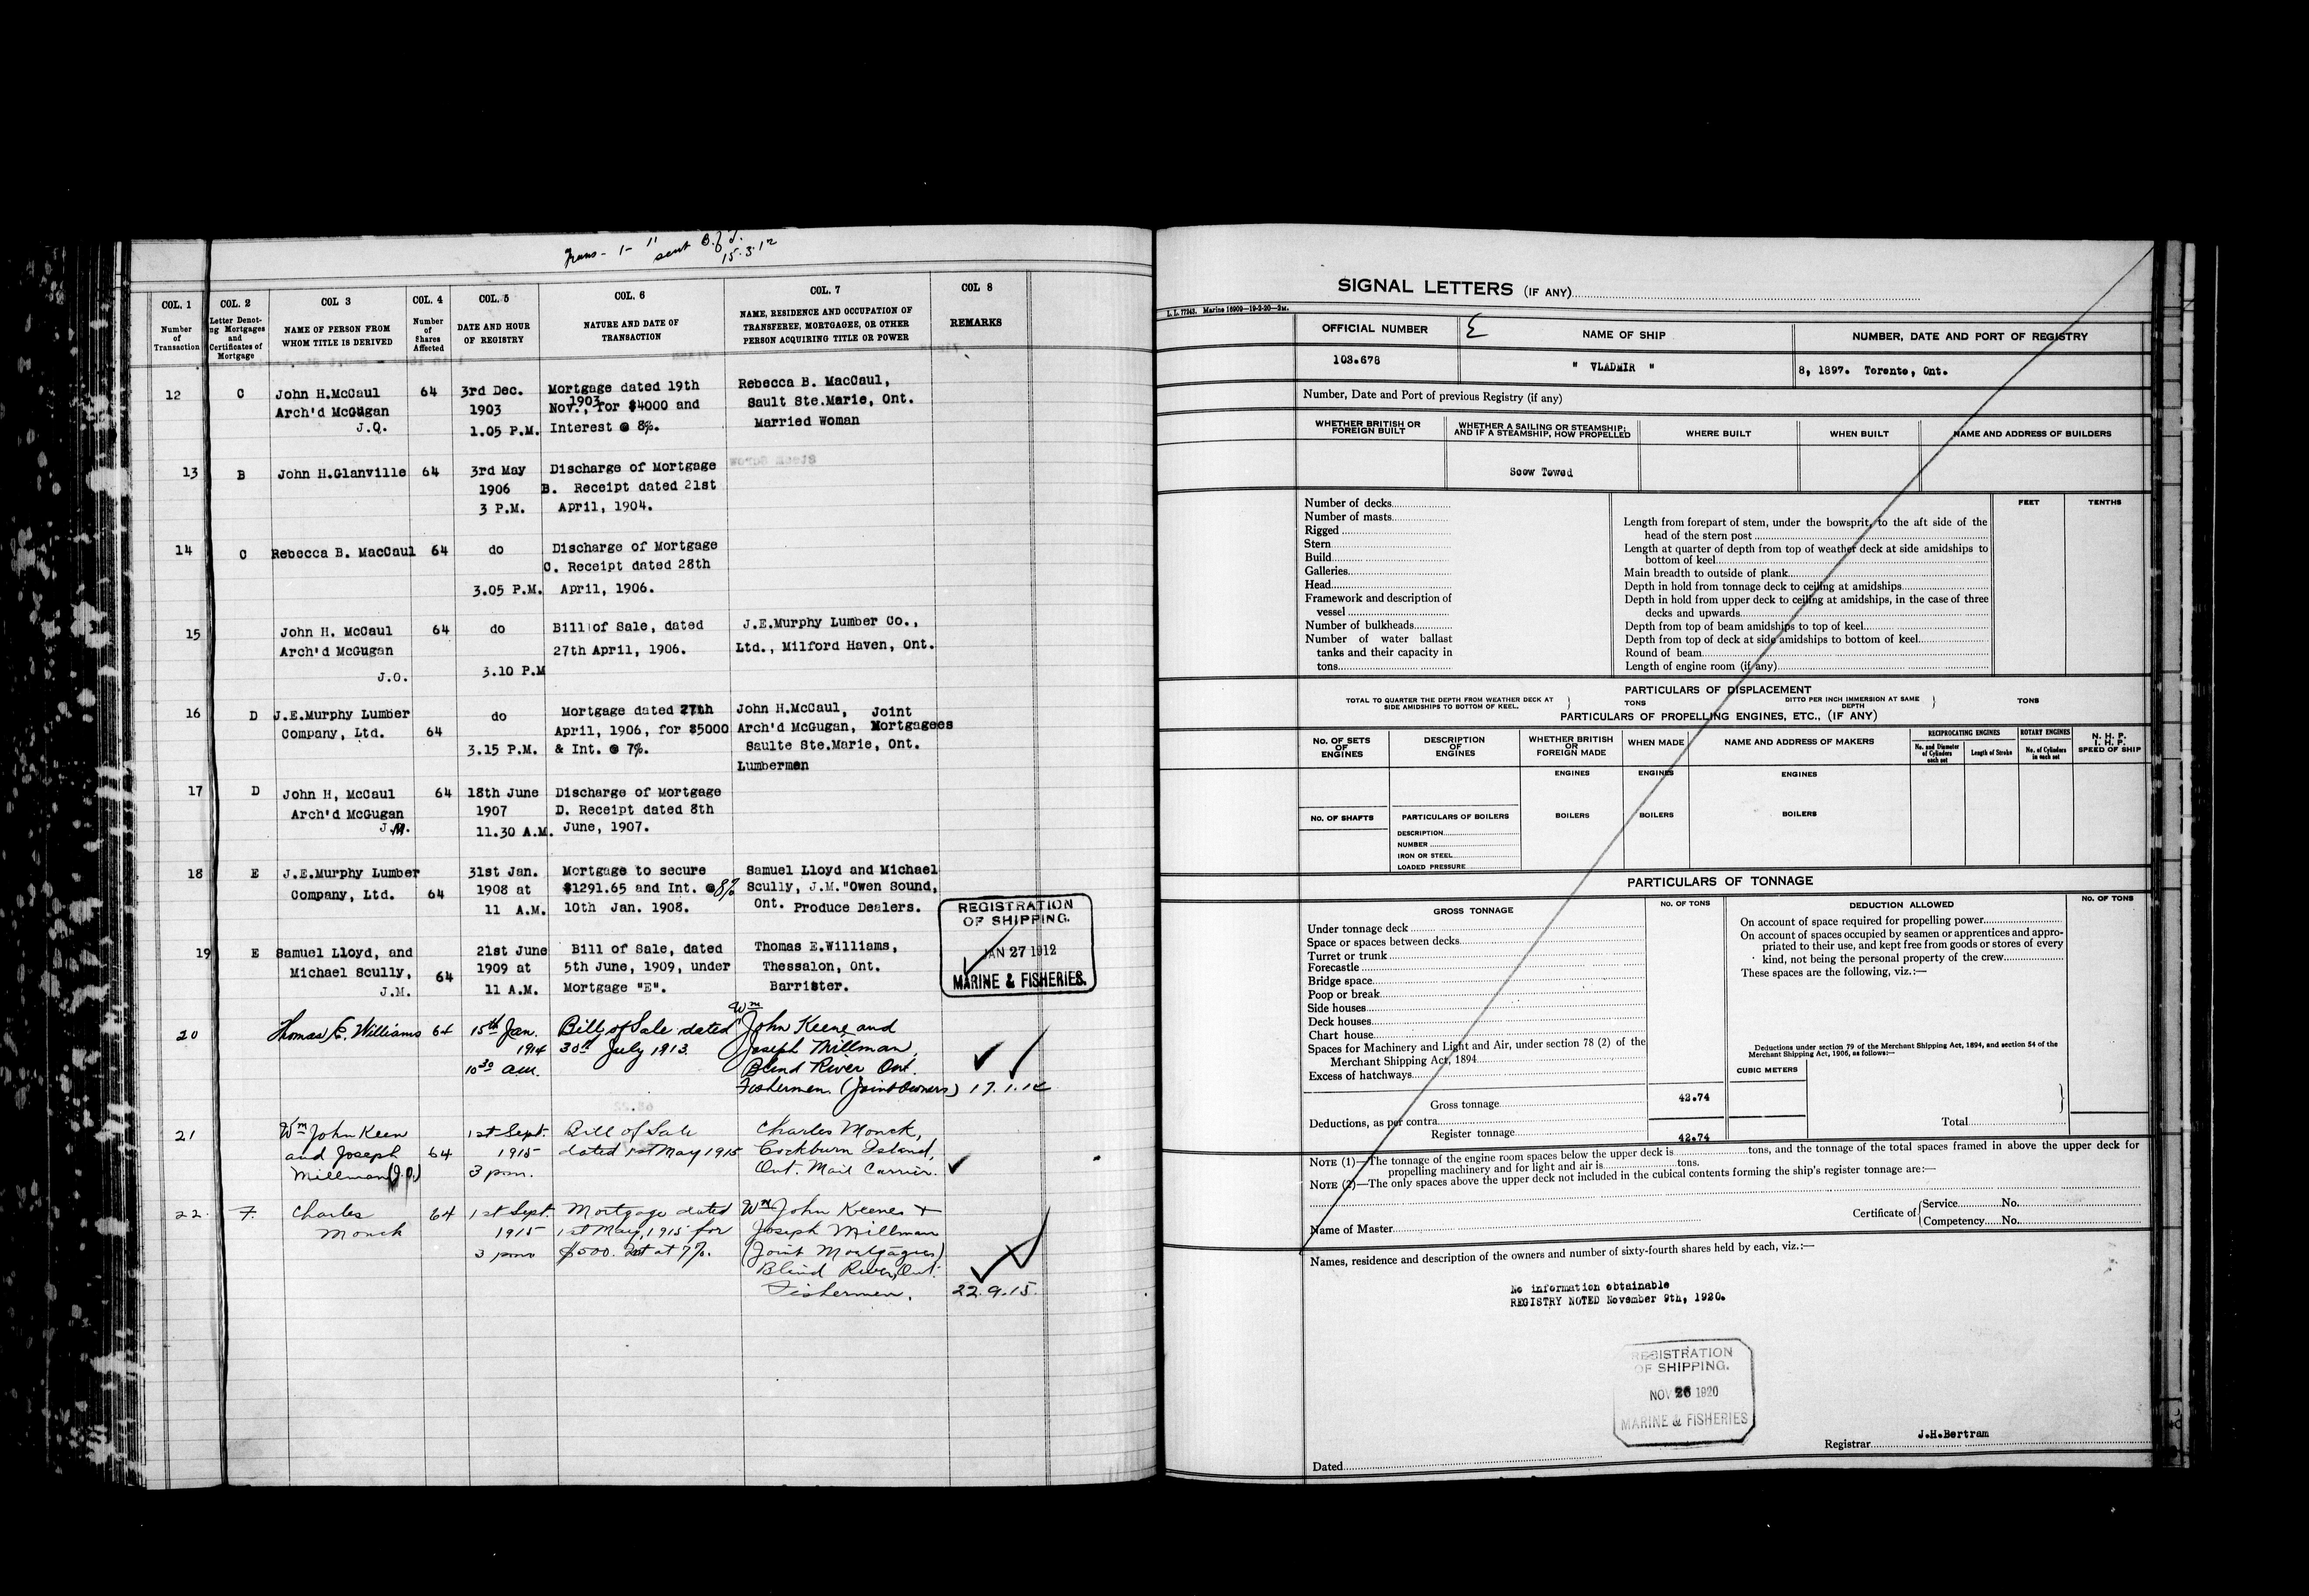 Trans - 1 - " sent B. of T.
15.3.12
COL. 1
Number of Transaction
COL. 2
Letter Denoting Mortgages and Certificates of Mortgage
COL 3
NAME OF PERSON FROM WHOM TITLE IS DERIVED
COL. 4
Number of Shares Affected
COL. 5
DATE AND HOUR OF REGISTRY
COL. 6
NATURE AND DATE OF TRANSACTION
COL. 7
NAME, RESIDENCE AND OCCUPATION OF TRANSFEREE, MORTGAGEE, OR OTHER PERSON ACQUIRING TITLE OR POWER
COL 8
REMARKS
12 C John H.McCaul 64 3rd Dec. Mortgage dated 19th Rebecca B. MacCaul,
Arch'd McGugan 1903 Nov., 1903 for $4000 and Sault Ste.Marie, Ont.
J.O. 1.05 P.M. Interest @ 8%. Married Woman
13 B John H.Glanville 64 3rd May Discharge of Mortgage
1906 B. Receipt dated 21st
3 P.M. April, 1904.
14 C Rebecca B. MacCaul 64 do Discharge of Mortgage
C. Receipt dated 28th
3.05 P.M. April, 1906.
15 John H. McCaul 64 do Bill of Sale, dated J.E.Murphy Lumber Co.,
Arch'd McGugan 27th April, 1906. Ltd., Milford Haven, Ont.
J.O. 3.10 P.M
16 D J.E.Murphy Lumber do Mortgage dated 27th John H.McCaul, Joint
Company, Ltd. 64 April, 1906, for $5000 Arch'd McGugan, Mortgagees
3.15 P.M. & Int. @ 7%. Saulte Ste.Marie, Ont.
Lumbermen
17 D John H, McCaul 64 18th June Discharge of Mortgage
Arch'd McGugan 1907 D. Receipt dated 8th
J.M. 11.30 A.M. June, 1907.
18 E J.E.Murphy Lumber 31st Jan. Mortgage to secure Samuel Lloyd and Michael
Company, Ltd. 64 1908 at $1291.65 and Int. @ 8% Scully, J.M."Owen Sound,
11 A.M. 10th Jan. 1908. Ont. Produce Dealers.
REGISTRATION
OF SHIPPING.
JAN 27 1912
MARINE & FISHERIES.
19 E Samuel Lloyd, and 21st June Bill of Sale, dated Thomas E.Williams,
Michael Scully, 64 1909 at 5th June, 1909, under Thessalon, Ont.
J.M. 11 A.M. Mortgage "E". Barrister.
20 Thomas E. Williams 64 15th Jan. Bill of Sale dated Wm John Keene and
1914 30th July 1913. Joseph Millman,
10 30 a.m. Blind River Ont.
Fishermen (Joint Owners) 17.1.14
21 Wm John Keen 1st Sept. Bill of Sale Charles Monck,
and Joseph 64 1915 dated 1st May 1915 Cockburn Island,
Millman (J.O.) 3 p.m. Ont. Mail Carrier.
22. F. Charles 64 1st Sept. Mortgage dated Wm John Keenes +
Monck 1915 1st May, 1915 for Joseph Millman
3 p.m. $500. Int at 7%. (Joint Mortgagees)
Blind River, Ont.
Fishermen. 22.9.15.
SIGNAL LETTERS (IF ANY)
L. L. 77243. Marine 16909—19-2-20—2M.
OFFICIAL NUMBER
NAME OF SHIP
NUMBER, DATE AND PORT OF REGISTRY
103.678
" VLADMIR "
8, 1897. Toronto, Ont.
Number, Date and Port of previous Registry (if any)
WHETHER BRITISH OR FOREIGN BUILT
WHETHER A SAILING OR STEAMSHIP; AND IF A STEAMSHIP, HOW PROPELLED
WHERE BUILT
WHEN BUILT
NAME AND ADDRESS OF BUILDERS
Scow Towed
Number of decks
Number of masts
Rigged
Stern
Build
Galleries
Head
Framework and description of
vessel
Number of bulkheads
Number of water ballast
tanks and their capacity in
tons
FEET
TENTHS
Length from forepart of stem, under the bowsprit, to the aft side of the
head of the stern post
Length at quarter of depth from top of weather deck at side amidships to
bottom of keel
Main breadth to outside of plank
Depth in hold from tonnage deck to ceiling at amidships
Depth in hold from upper deck to ceiling at amidships, in the case of three
decks and upwards
Depth from top of beam amidships to top of keel
Depth from top of deck at side amidships to bottom of keel
Round of beam
Length of engine room (if any)
PARTICULARS OF DISPLACEMENT
TOTAL TO QUARTER THE DEPTH FROM WEATHER DECK AT SIDE AMIDSHIPS TO BOTTOM OF KEEL.
TONS
DITTO PER INCH IMMERSION AT SAME DEPTH
TONS
PARTICULARS OF PROPELLING ENGINES, ETC., (IF ANY)
No. OF SETS OF ENGINES
DESCRIPTION OF ENGINES
WHETHER BRITISH OR FOREIGN MADE
WHEN MADE
NAME AND ADDRESS OF MAKERS
RECIPROCATING ENGINES
No. and Diameter of Cylinders each set
Length of Stroke
ROTARY ENGINES
No. of Cylinders in each set
N. H. P.
I. H. P.
SPEED OF SHIP
ENGINES
ENGINES
ENGINES
No. OF SHAFTS
PARTICULARS OF BOILERS
BOILERS
BOILERS
BOILERS
DESCRIPTION
NUMBER
IRON OR STEEL
LOADED PRESSURE
PARTICULARS OF TONNAGE
GROSS TONNAGE
No. OF TONS
DEDUCTION ALLOWED
No. OF TONS
Under tonnage deck
Space or spaces between decks
Turret or trunk
Forecastle
Bridge space
Poop or break
Side houses
Deck houses
Chart house
Spaces for Machinery and Light and Air, under section 78 (2) of the
Merchant Shipping Act, 1894
Excess of hatchways
Gross tonnage 42.74
Deductions, as per contra
Register tonnage 42.74
On account of space required for propelling power
On account of spaces occupied by seamen or apprentices and appro-
priated to their use, and kept free from goods or stores of every
kind, not being the personal property of the crew
These spaces are the following, viz.:—
Deductions under section 79 of the Merchant Shipping Act, 1894, and section 54 of the
Merchant Shipping Act, 1906, as follows:—
CUBIC METERS
Total
NOTE (1)—The tonnage of the engine room spaces below the upper deck is tons, and the tonnage of the total spaces framed in above the upper deck for
propelling machinery and for light and air is tons.
NOTE (2)—The only spaces above the upper deck not included in the cubical contents forming the ship's register tonnage are:—
Name of Master
Certificate of
Service No.
Competency No.
Names, residence and description of the owners and number of sixty-fourth shares held by each, viz.:—
No information obtainable
REGISTRY NOTED November 9th, 1920.
REGISTRATION
OF SHIPPING.
NOV 26 1920
MARINE & FISHERIES
J.H.Bertram
Registrar
Dated